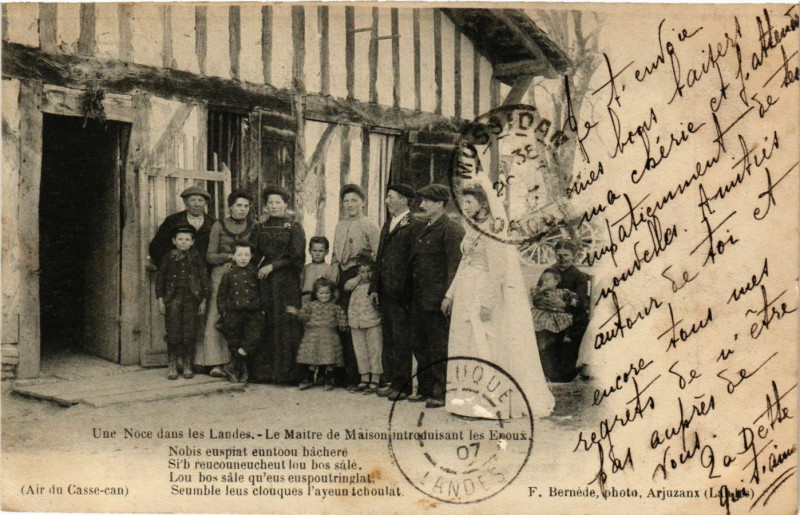 Je t'envoie
mes bons baisers
ma chérie et j'attends
impatiemment de tes
nouvelles. Amitiés
autour de toi et
encore tous mes
regrets de n'être
pas auprès de
vous.
qui t'aime
MOUS
DORDOGNE
LUQUE
07
LANDES
Une Noce dans les Landes. - Le Maitre de Maison introduisant les Epoux.
Nobis euspiat euntoou bàcheré
Si'b reucouneucheut lou bos sâle.
Lou bos sâle qu'eus euspoutringlat.
Seumble leus clouques l'ayeun tchoulat.
(Air du Casse-can)
F. Bernède, photo, Arjuzanx (Landes)